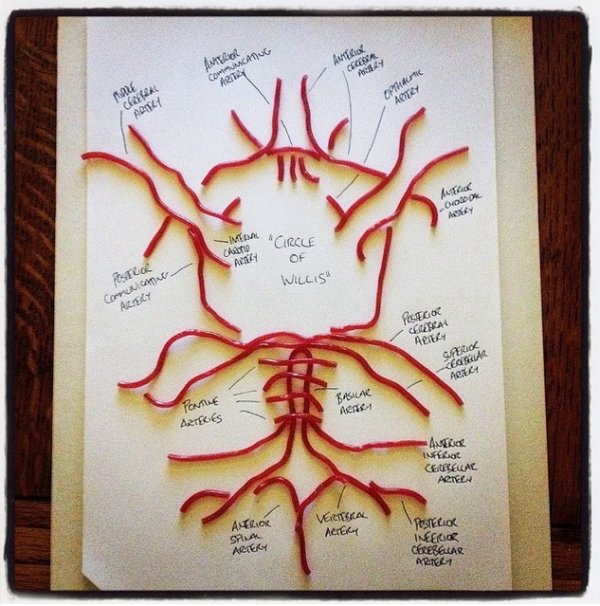 ANTERIOR
COMMUNICATING
ARTERY
ANTERIOR
CEREBRAL
ARTERY
MIDDLE
CEREBRAL
ARTERY
OPTHALMIC
ARTERY
ANTERIOR
CHOROIDAL
ARTERY
INTERNAL
CAROTID
ARTERY
"CIRCLE
OF
WILLIS"
POSTERIOR
COMMUNICATING
ARTERY
POSTERIOR
CEREBRAL
ARTERY
SUPERIOR
CEREBELLAR
ARTERY
PONTINE
ARTERIES
BASILAR
ARTERY
ANTERIOR
INFERIOR
CEREBELLAR
ARTERY
ANERIOR
SPINAL
ARTERY
VERTEBRAL
ARTERY
POSTERIOR
INFERIOR
CEREBELLAR
ARTERY